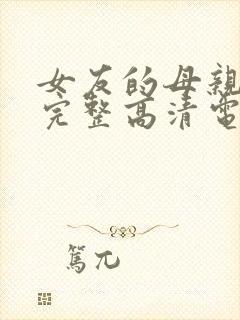 女友的母親
完整高清電
篤兀